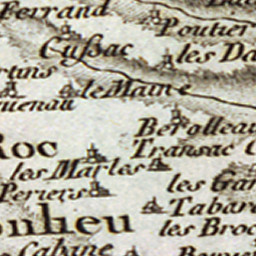 Ferrand
Poutier
Cussac
les Da
rtins
le Maine
uenau
Berolleau
Roc
Transac
les Marles
les Gar
Periers
Tabar
onlieu
les Broc
Cabine